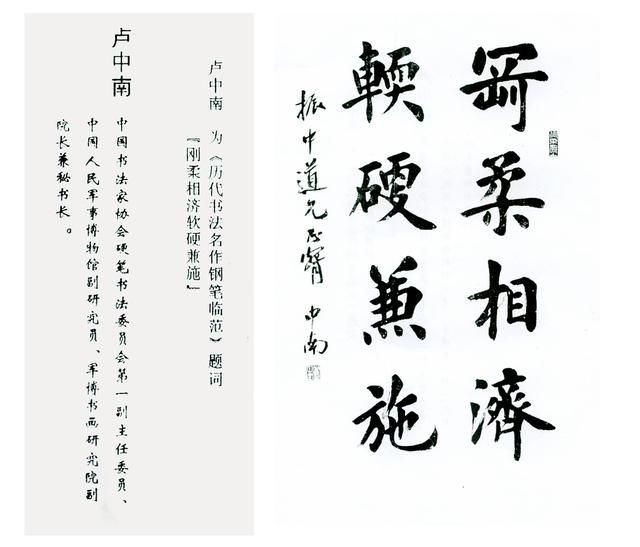 卢中南 为《历代书法名作钢笔临范》题词
『刚柔相济软硬兼施』
卢中南
中国书法家协会硬笔书法委员会第一副主任委员、
中国人民军事博物馆副研究员、军博书画研究院副
院长兼秘书长。
剛柔相濟
輭硬兼施
振中道兄正 中南